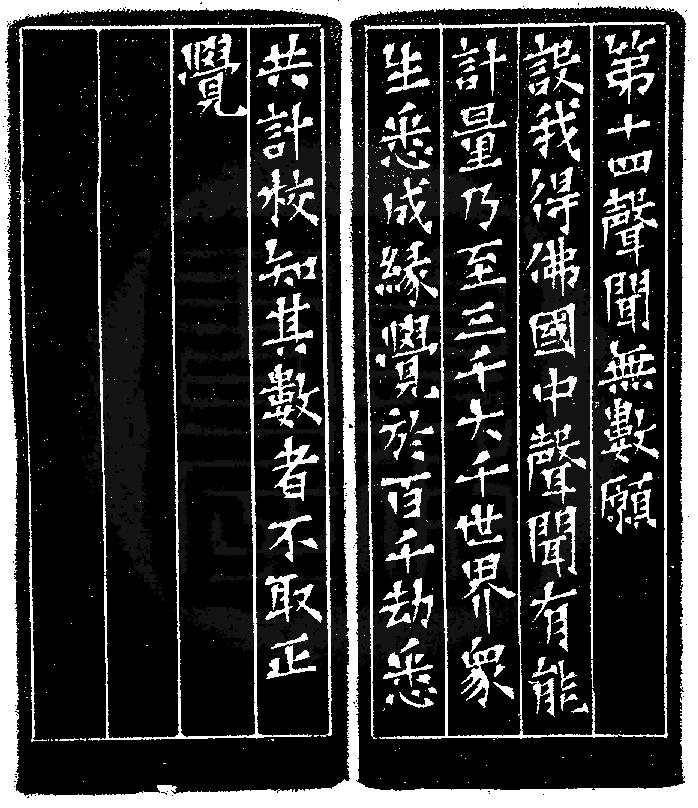 第十四聲聞無數願
設我得佛國中聲聞有能
計量乃至三千大千世界衆
生悉成緣覺於百千劫悉
共計校知其數者不取正
覺